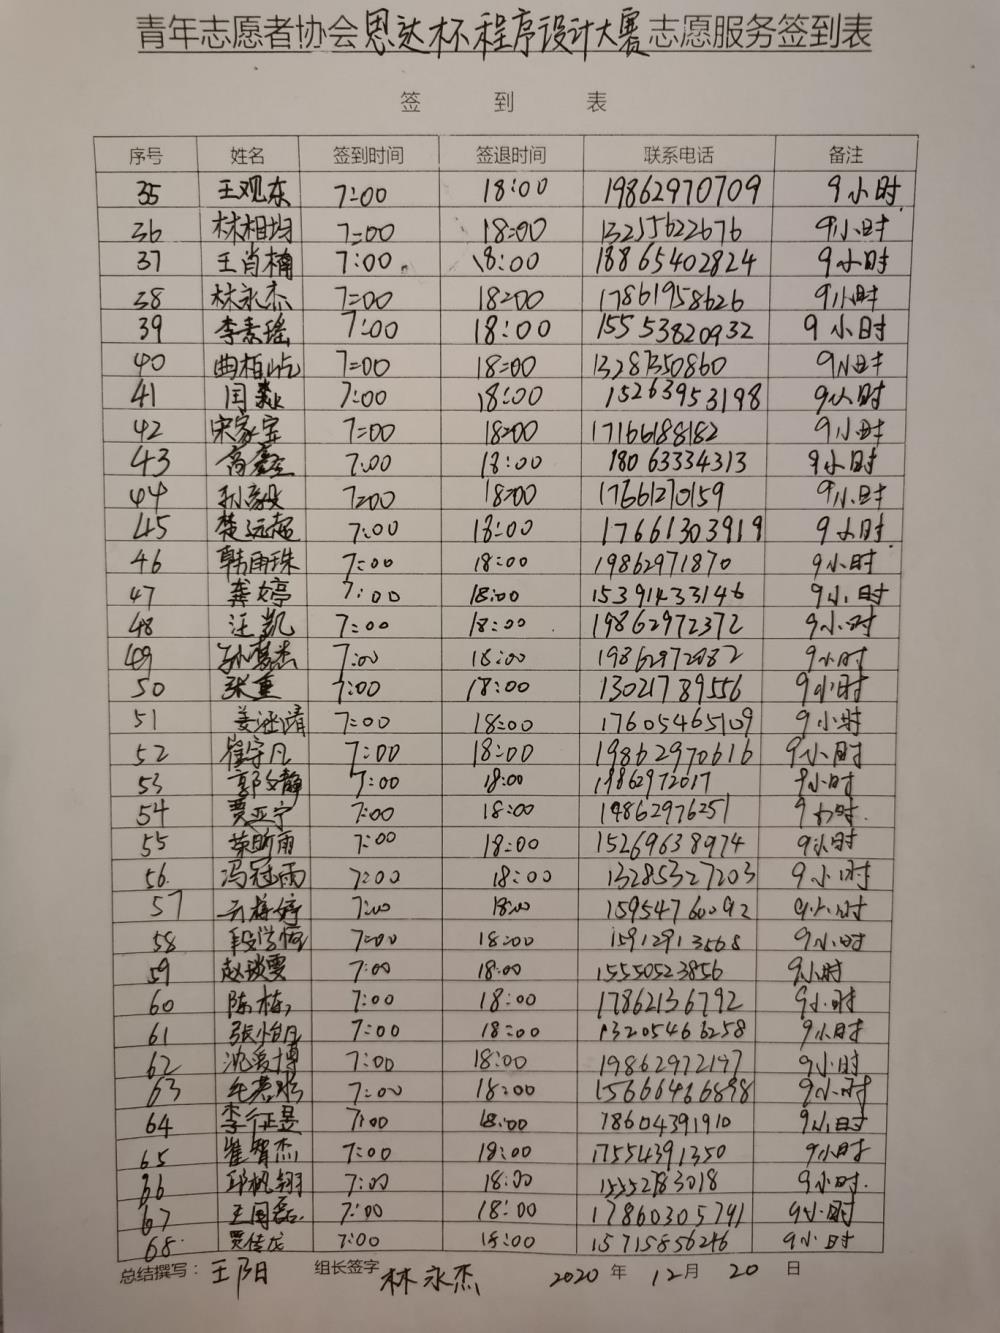 青年志愿者协会恩达杯程序设计大赛志愿服务签到表
签 到 表
序号 姓名 签到时间 签退时间 联系电话 备注
35 王观东 7:00 18:00 19862970709 9小时
36 林相均 7:00 18:00 13255622676 9小时
37 王肖楠 7:00 18:00 18865402824 9小时
38 林永杰 7:00 18:00 17861958626 9小时
39 李素瑶 7:00 18:00 15553820932 9小时
40 曲柏屹 7:00 18:00 13287350860 9小时
41 闫 7:00 18:00 15263953198 9小时
42 宋家宝 7:00 18:00 17166188182 9小时
43 高鑫 7:00 18:00 18063334313 9小时
44 孙毅 7:00 18:00 17661270159 9小时
45 楚远超 7:00 18:00 17661303919 9小时
46 韩雨珠 7:00 18:00 19862971870 9小时
47 龚婷 7:00 18:00 15391433146 9小时
48 汪凯 7:00 18:00 19862972372 9小时
49 7:00 18:00 19862972082 9小时
50 张重 7:00 18:00 13021789556 9小时
51 姜涵清 7:00 18:00 17605465109 9小时
52 崔守凡 7:00 18:00 19862970616 9小时
53 郭文静 7:00 18:00 19862972017 9小时
54 贾亚宁 7:00 18:00 19862976251 9小时
55 荣昕雨 7:00 18:00 15269638974 9小时
56 冯冠雨 7:00 18:00 13285327203 9小时
57 7:00 18:00 15954760092 9小时
58 7:00 18:00 15912913568 9小时
59 7:00 18:00 15550523856 9小时
60 陈栋 7:00 18:00 17862136792 9小时
61 张怡凡 7:00 18:00 13205466258 9小时
62 沈爱博 7:00 18:00 19862972197 9小时
63 7:00 18:00 15666466898 9小时
64 李征昱 7:00 18:00 78604391910 9小时
65 崔智杰 7:00 18:00 17554391350 9小时
66 邱帆翔 7:00 18:00 15552783018 9小时
67 王国磊 7:00 18:00 17860305791 9小时
68 贾传龙 7:00 18:00 15715856246 9小时
总结撰写：王阳 组长签字 林永杰 2020 年 12 月 20 日